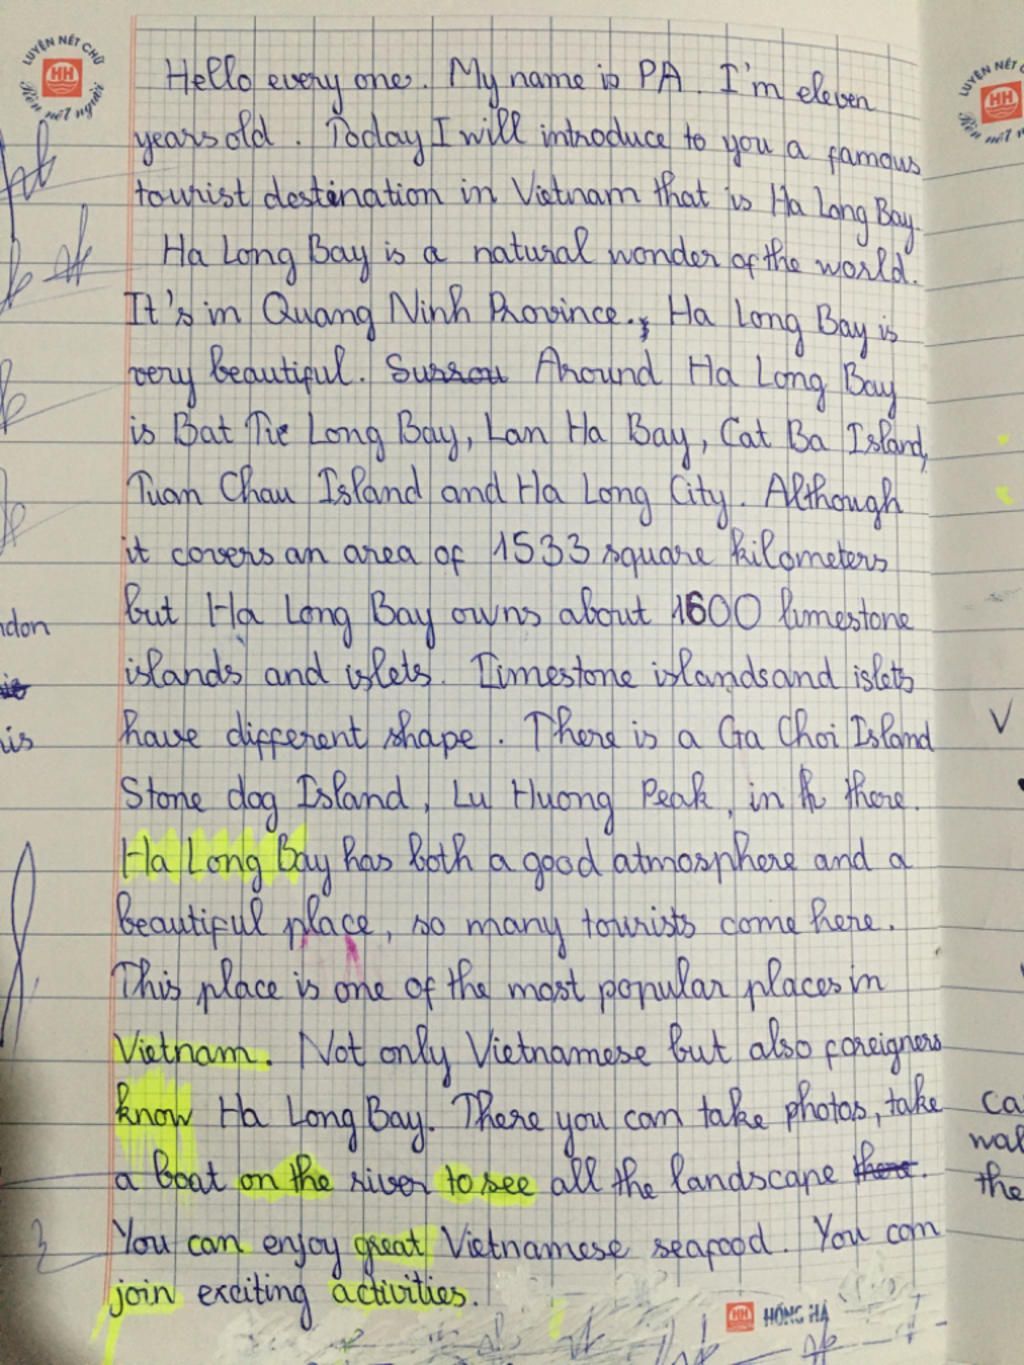 LUYỆN NÉT CHỮ
HH
Rèn nết người
LUYỆN NÉT
HH
Rèn nết n
Hello every one. My name is PA. I'm eleven
years old. Today I will introduce to you a famous
tourist destination in Vietnam that is Ha Long Bay.
Ha Long Bay is a natural wonder of the world.
It's in Quang Ninh Province. Ha Long Bay is
very beautiful. Surrou Around Ha Long Bay
is Bat Tie Long Bay, Lan Ha Bay, Cat Ba Island,
Tuan Chau Island and Ha Long City. Although
it covers an area of 1533 square kilometers
but Ha Long Bay owns about 1600 limestone
islands and islets. Limestone islands and islets
have different shape. There is a Ga Choi Island
Stone dog Island, Lu Huong Peak, in th there.
Ha Long Bay has both a good atmosphere and a
beautiful place, so many tourists come here.
This place is one of the most popular places in
Vietnam. Not only Vietnamese but also foreigners
know Ha Long Bay. There you can take photos, take
a boat on the river to see all the landscape there.
You can enjoy great Vietnamese seafood. You can
join exciting activities.
HH HỒNG HÀ
ndon
his
V
Ca
wal
the